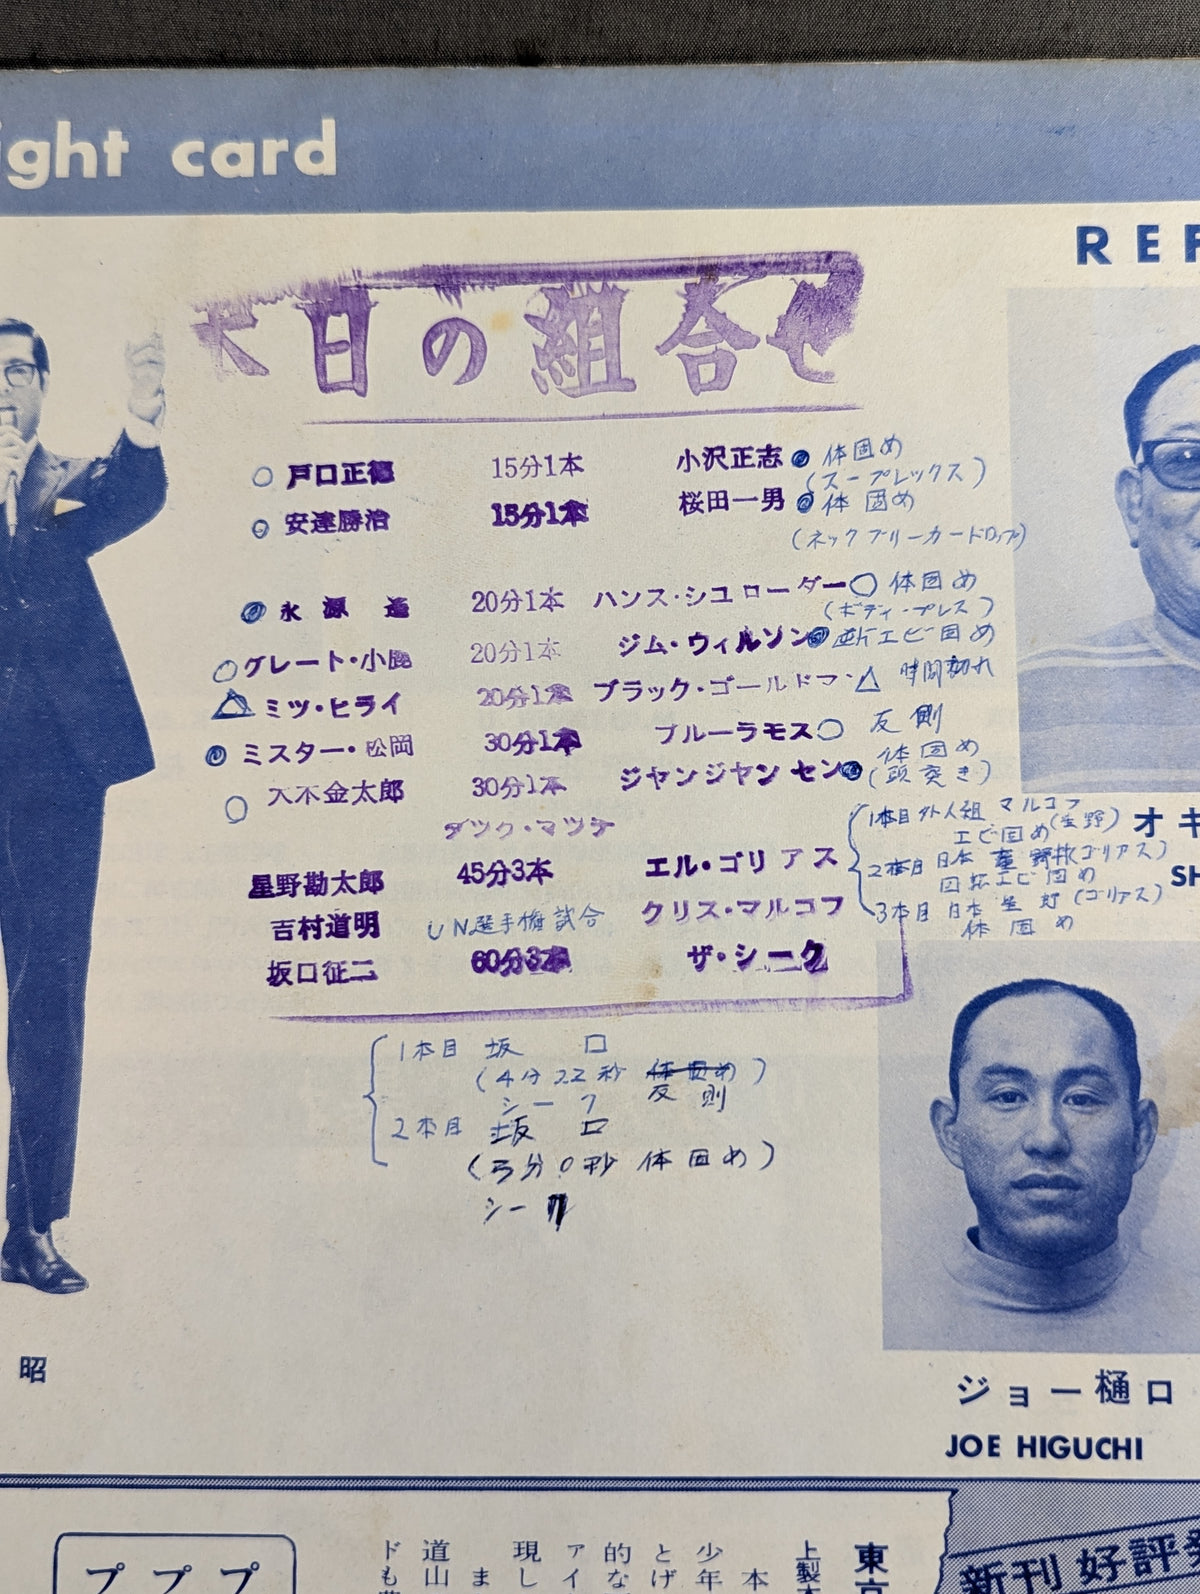 ight card
REF
本日の組合せ
○ 戸口正徳 15分1本 小沢正志 ● 体固め
(スープレックス)
○ 安達勝治 15分1本 桜田一男 ● 体固め
(ネックブリーカードロップ)
● 永源遥 20分1本 ハンス・シュローダー ○ 体固め
(ボディ・プレス)
○ グレート・小鹿 20分1本 ジム・ウィルソン ● 逆エビ固め
△ ミツ・ヒライ 20分1本 ブラック・ゴールドマン △ 時間切れ
● ミスター・松岡 30分1本 ブルーラモス ○ 反則
○ 大木金太郎 30分1本 ジャンジャン セン ● 体固め
(頭突き)
タッグ・マッチ
星野勘太郎 45分3本 エル・ゴリアス
吉村道明 クリス・マルコフ
1本目 外人組 マルコフ
エビ固め (星野)
2本目 日本 星野 (ゴリアス)
回転エビ固め
3本目 日本 星野 (ゴリアス)
体固め
UN選手権試合
坂口征二 60分3本 ザ・シーク
1本目 坂口
(4分22秒 体固め)
反則
シーク
2本目 坂口
(3分0秒 体固め)
シーク
オキ
SH
昭
ジョー樋口
JOE HIGUCHI
プププ
ドも
道山
ま
現し
アイ
的な
とげ
少年
本
上製本
東京
新刊好評発